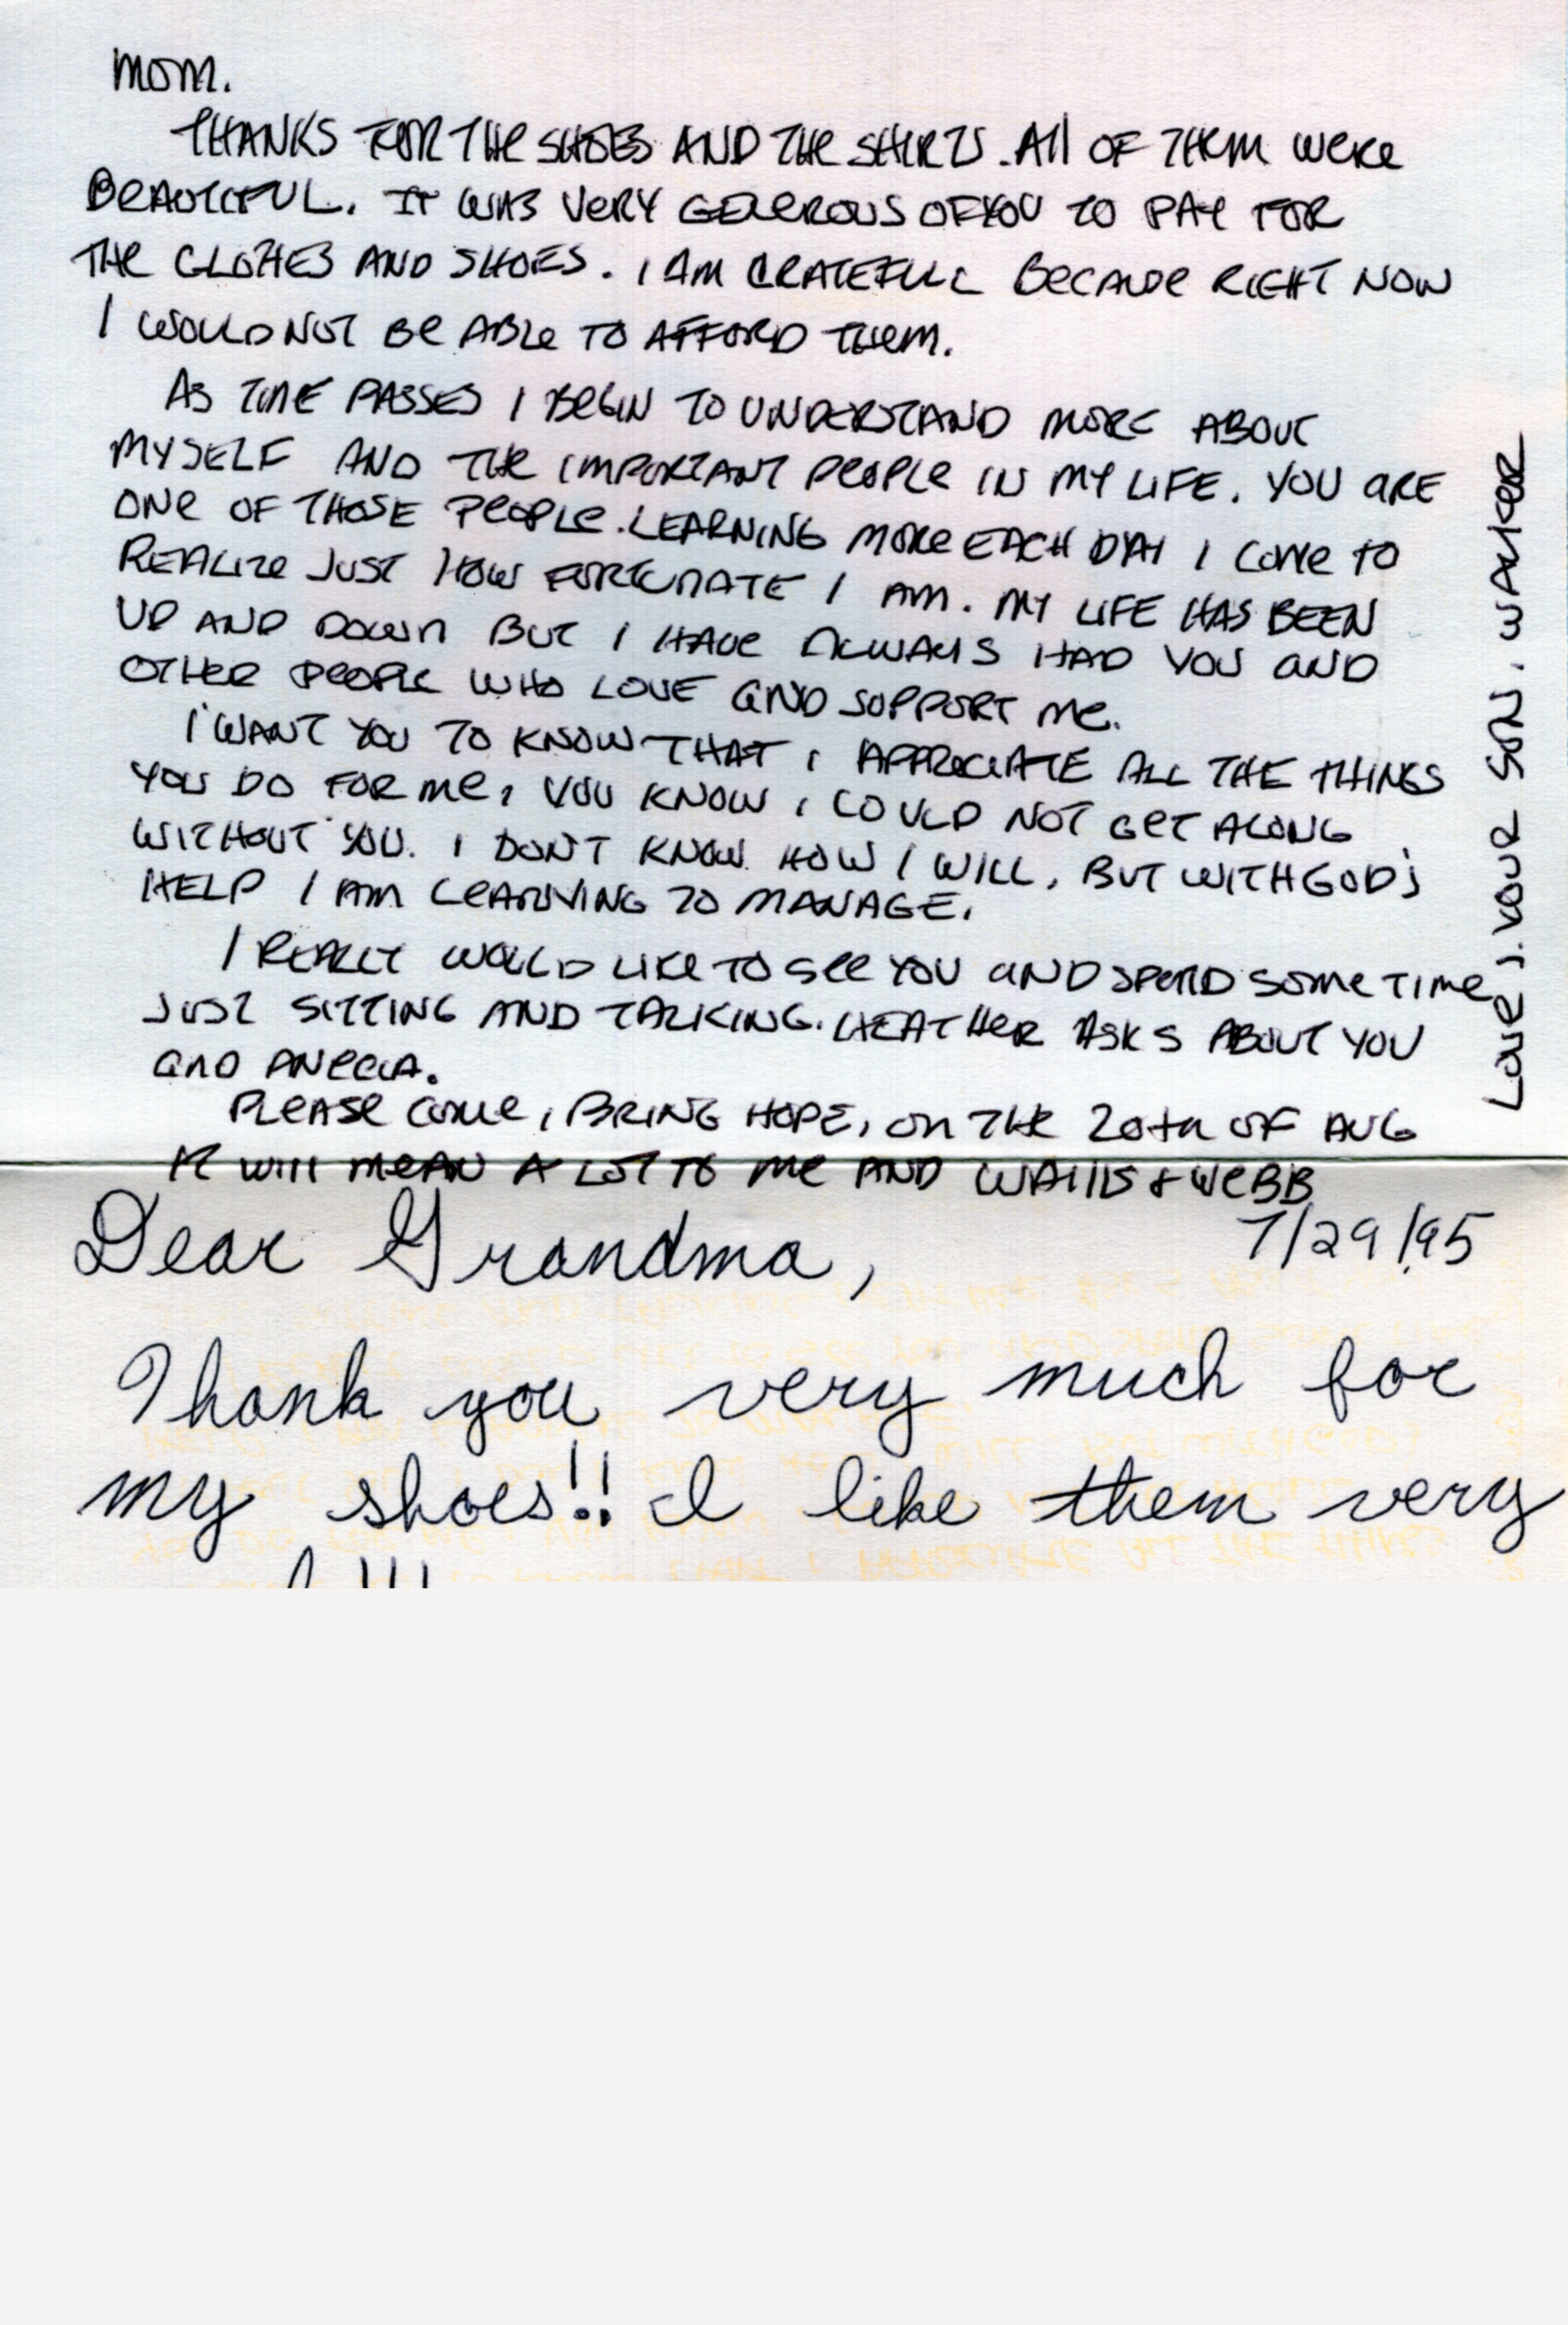 MOM.
THANKS FOR THE SHOES AND THE SHIRTS. All OF THEM WERE
BEAUTIFUL. IT WAS VERY GENEROUS OF YOU TO PAY FOR
THE CLOTHES AND SHOES. I AM GRATEFULL BECAUSE RIGHT NOW
I WOULD NOT BE ABLE TO AFFORD THEM.
AS TIME PASSES I BEGIN TO UNDERSTAND MORE ABOUT
MYSELF AND THE IMPORTANT PEOPLE IN MY LIFE. YOU ARE
ONE OF THOSE PEOPLE. LEARNING MORE EACH DAY I COME TO
REALIZE JUST HOW FORTUNATE I AM. MY LIFE HAS BEEN
UP AND DOWN BUT I HAVE ALWAYS HAD YOU AND
OTHER PEOPLE WHO LOVE AND SUPPORT ME.
I WANT YOU TO KNOW THAT I APPRECIATE ALL THE THINGS
YOU DO FOR ME, YOU KNOW I COULD NOT GET ALONG
WITHOUT YOU. I DON'T KNOW HOW I WILL, BUT WITH GOD'S
HELP I AM LEARNING TO MANAGE.
I REALLY WOULD LIKE TO SEE YOU AND SPEND SOME TIME
JUST SITTING AND TALKING. HEATHER ASKS ABOUT YOU
AND
PLEASE COME, BRING HOPE, ON THE 20th OF AUG
IT WILL MEAN A LOT TO ME AND WALLIS & WEBB
LOVE, YOUR SON, WALKER
Dear Grandma, 7/29/95
Thank you very much for
my shoes!! I like them very